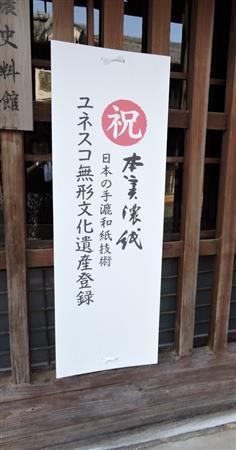 祝
本美濃紙
日本の手漉和紙技術
ユネスコ無形文化遺産登録
史料館